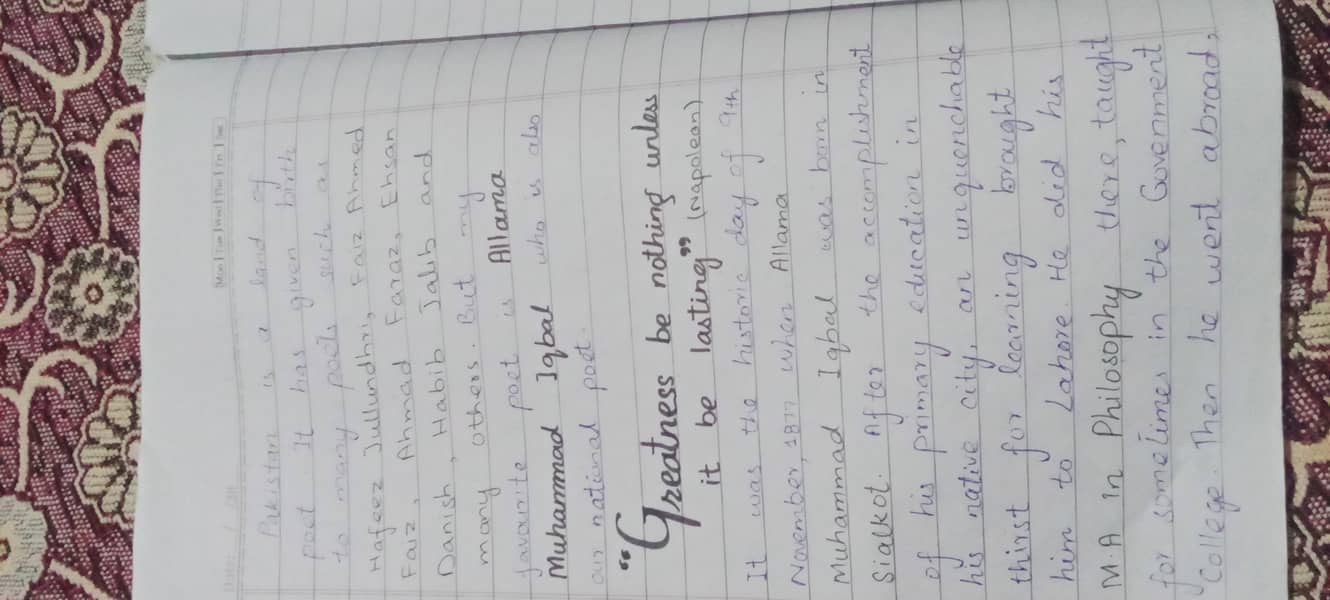 Mon Tue Wed Thu Fri Sat
Pakistan is a land of
poet. It has given birth
to many poets such as
Hafeez Jullundhri, Faiz Ahmed
Faiz, Ahmad Faraz, Ehsan
Danish, Habib Jalib and
many others. But my
favourite poet is Allama
Muhammad Iqbal who is also
our national poet.
"Greatness be nothing unless
it be lasting" (Napolean)
It was the historic day of 9th
November, 1877 when Allama
Muhammad Iqbal was born in
Sialkot. After the accomplishment
of his primary education in
his native city, an unquenchable
thirst for learning brought
him to Lahore. He did his
M.A in Philosophy there, taught
for sometimes in the Government
College. Then he went abroad,